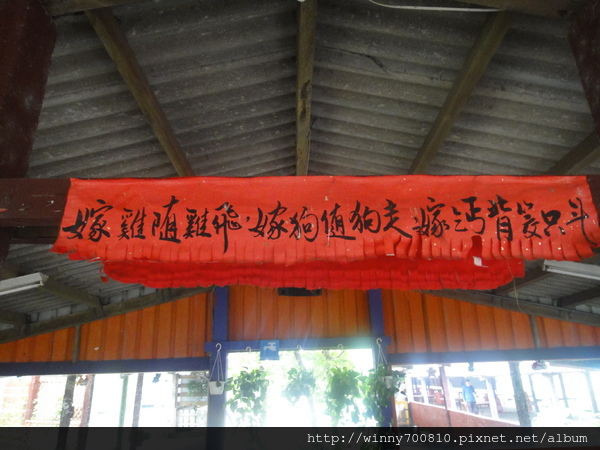 嫁雞隨雞飛,嫁狗隨狗走,嫁 背 只斗
http://winny700810.pixnet.net/album